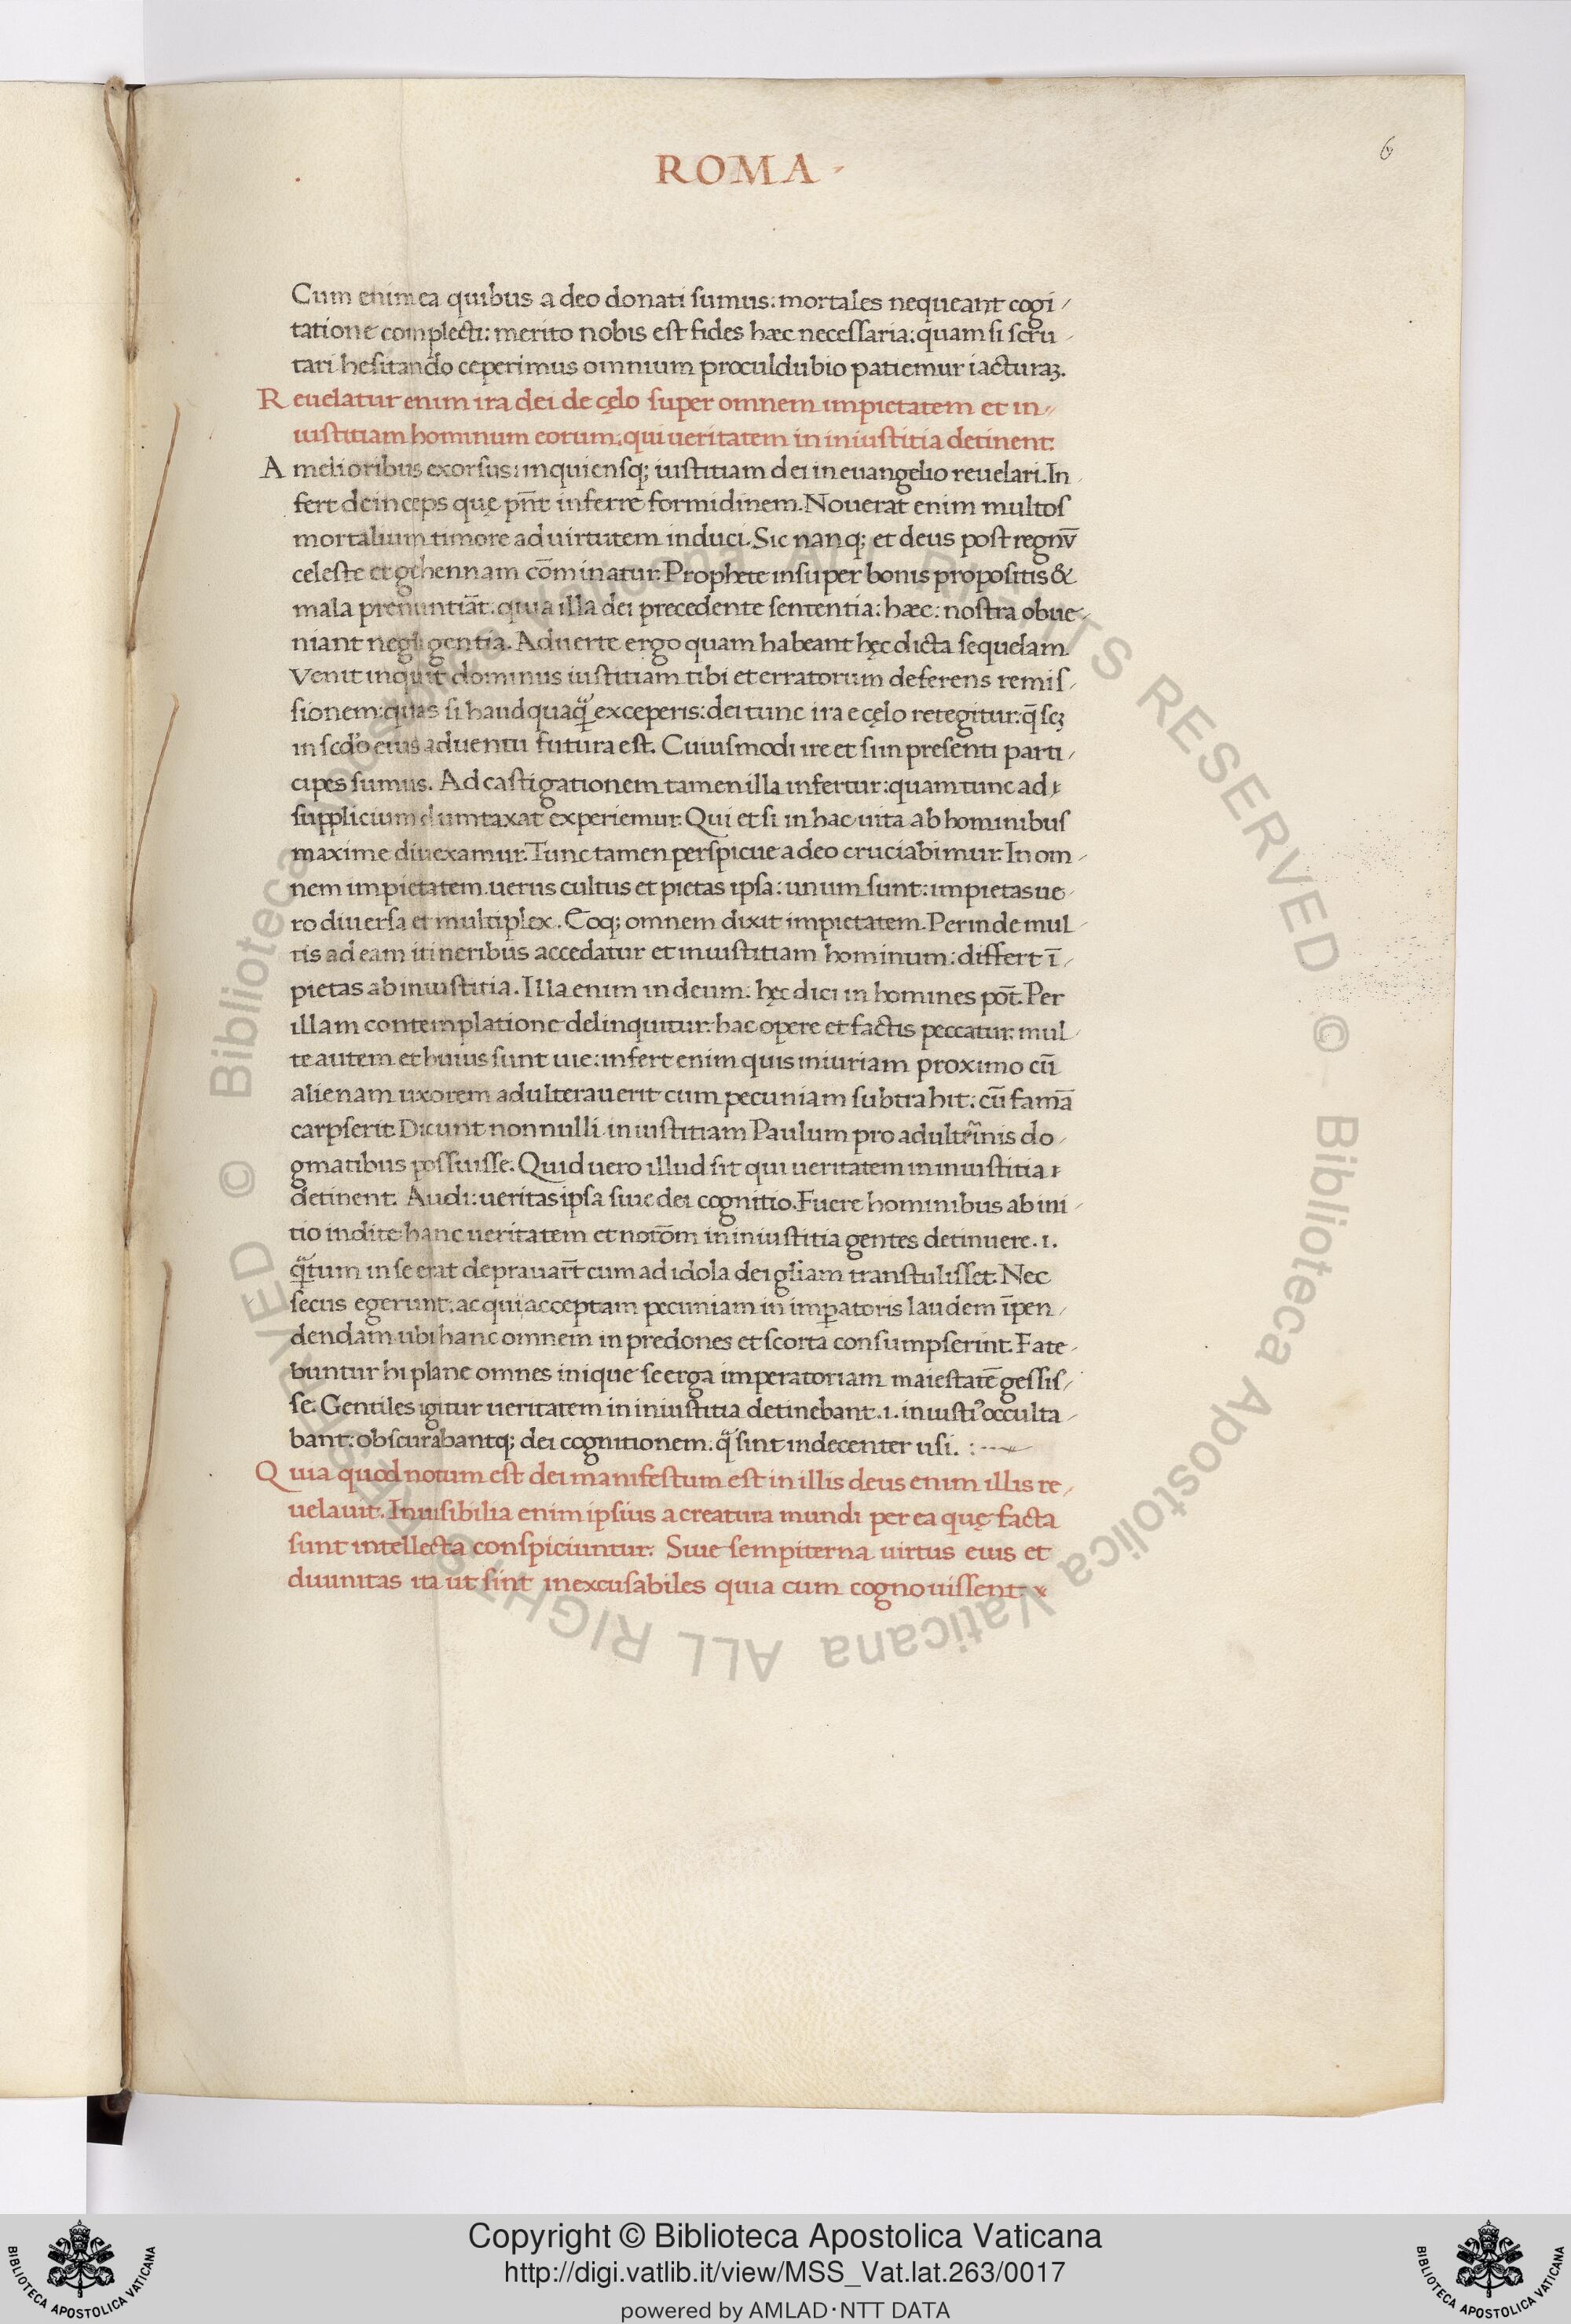 ROMA
6
Cum enim ea quibus a deo donati sumus: mortales nequeant cogi/
tatione complecti: merito nobis est fides hæc necessaria: quam si scru/
tari hesitando ceperimus omnium proculdubio patiemur iacturaꝫ.
Reuelatur enim ira dei de cęlo super omnem impietatem et in/
iustitiam hominum eorum: qui ueritatem in iniustitia detinent.
A melioribus exorsus: inquiensqꝫ iustitiam dei in euangelio reuelari. In
fert deinceps quę pn̄t inferre formidinem. Nouerat enim multos
mortalium timore ad uirtutem induci. Sic nanqꝫ et deus post regnū
celeste et gehennam cōminatur. Prophete insuper bonis propositis &
mala prenuntiāt. quia illa dei precedente sententia: hæc: nostra obue/
niant negligentia. Aduerte ergo quam habeant hęc dicta sequelam
Venit inquit dominus iustitiam tibi et erratorum deferens remis/
sionem: quas si haudquaq̈ exceperis: dei tunc ira e cęlo retegitur: q̄ scꝫ
in scd̓o eius aduentu futura est. Cuiusmodi ire et si in presenti parti/
cipes sumus. Ad castigationem tamen illa infertur: quam tunc ad
supplicium dumtaxat experiemur. Qui et si in hac uita ab hominibus
maxime diuexamur. Tunc tamen perspicue a deo cruciabimur. In om/
nem impietatem. uerus cultus et pietas ipsa: unum sunt: impietas ue/
ro diuersa et multiplex. Eoqꝫ omnem dixit impietatem. Perinde mul/
tis ad eam itineribus accedatur et iniustitiam hominum: differt ī/
pietas ab iniustitia. Illa enim in deum. hęc dici in homines pōt. Per
illam contemplatione delinquitur: hac opere et factis peccatur. mul/
te autem et huius sunt uie: infert enim quis iniuriam proximo cū
alienam uxorem adulterauerit cum pecuniam subtrahit: cū famā
carpserit Dicunt nonnulli iniustitiam Paulum pro adulterinis do/
gmatibus possuisse. Quid uero illud sit qui ueritatem in iniustitia
detinent. Audi: ueritas ipsa siue dei cognitio. Fuere hominibus ab ini/
tio indite hanc ueritatem et notōm in iniustitia gentes detinuere. i.
q̈tum in se erat deprauar̄t cum ad idola dei gl̄iam transtulisset. Nec
secus egerunt. ac qui acceptam pecuniam in imꝑatoris laudem īpen/
dendam ubi hanc omnem in predones et scorta consumpserint. Fate/
buntur hi plane omnes inique se erga imperatoriam maiestatē gessis/
se. Gentiles igitur ueritatem in iniustitia detinebant. i. iniusti᾿ occulta/
bant: obscurabantqꝫ dei cognitionem. q̈ sint indecenter usi. :
Quia quod notum est dei manifestum est in illis deus enim illis re/
uelauit. Inuisibilia enim ipsius a creatura mundi per ea quę facta
sunt intellecta conspiciuntur. Siue sempiterna uirtus eius et
diuinitas ita ut sint inexcusabiles quia cum cognouissent
© Biblioteca Apostolica Vaticana ALL RIGHTS RESERVED © Biblioteca Apostolica Vaticana ALL RIGHTS RESERVED
Copyright © Biblioteca Apostolica Vaticana
http://digi.vatlib.it/view/MSS_Vat.lat.263/0017
powered by AMLAD·NTT DATA
BIBLIOTECA APOSTOLICA VATICANA
BIBLIOTECA APOSTOLICA VATICANA